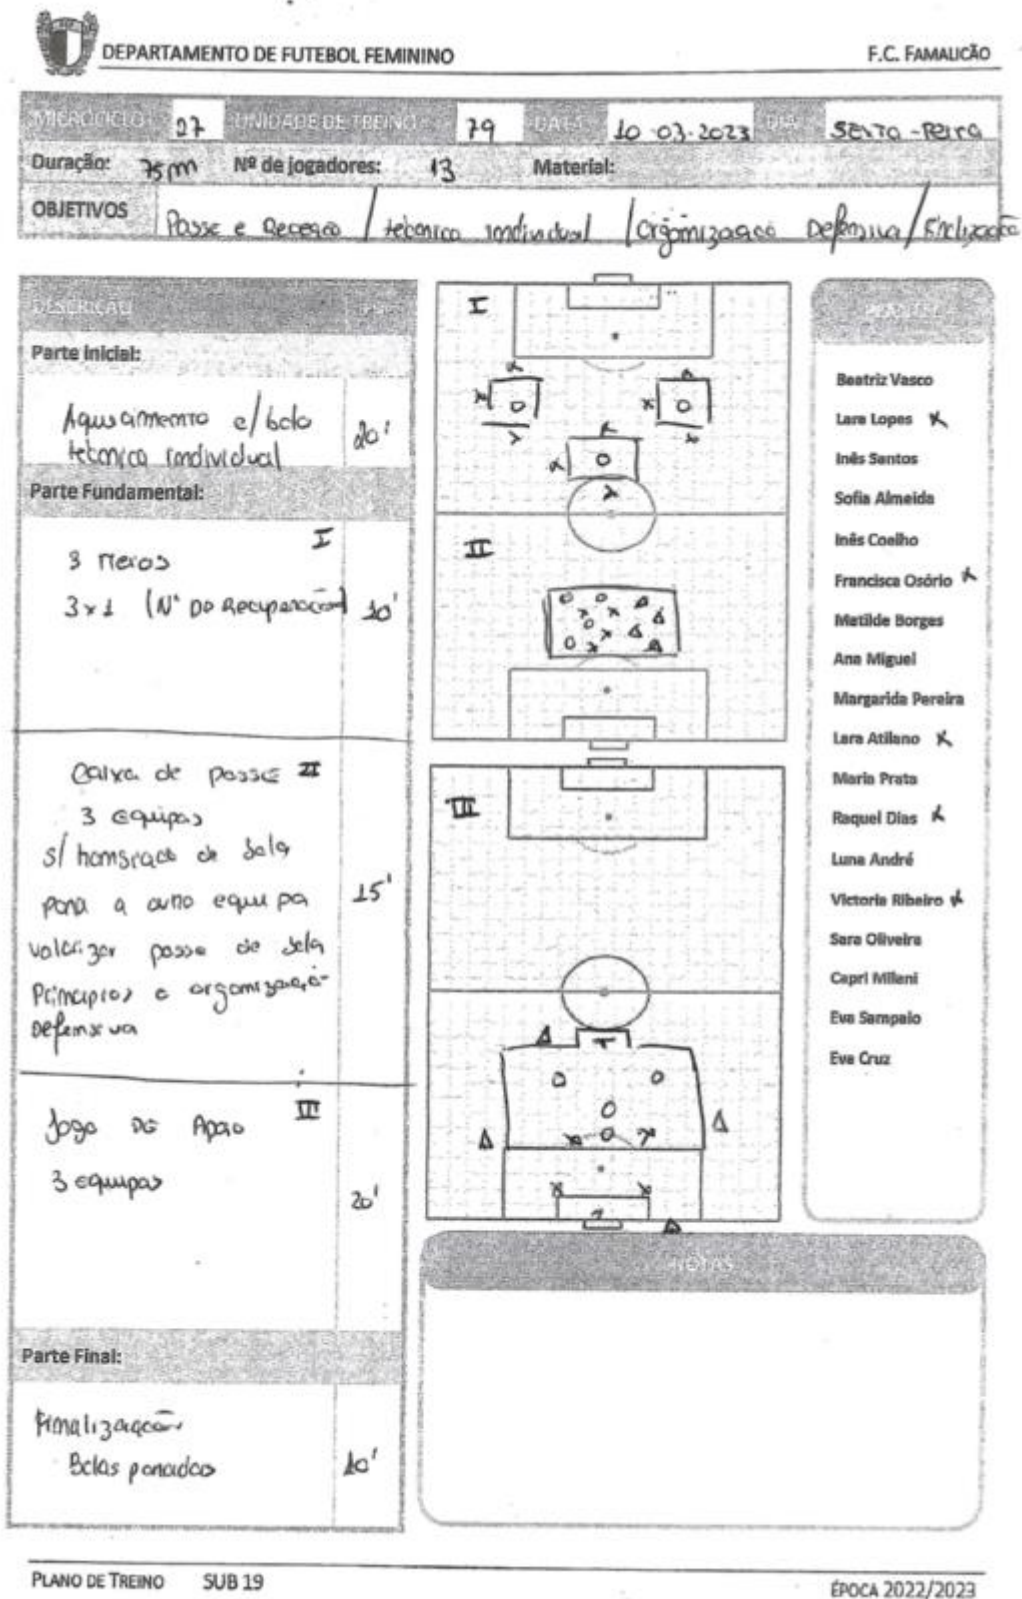 DEPARTAMENTO DE FUTEBOL FEMININO
F.C. FAMALICÃO
MICROCICLO: 27 UNIDADE DE TREINO: 79 DATA: 10-03-2023 DIA: Sexta-Feira
Duração: 75m Nº de jogadores: 13 Material:
OBJETIVOS Passe e Receção / técnica individual / Organização Defensiva /
DESCRIÇÃO
Parte Inicial:
Aquecimento c/ bola
técnica individual
20'
Parte Fundamental:
I
3 meios
3x1 (Nº DO Recuperação) 10'
Caixa de passe II
3 Equipas
s/ de bola
para a outra equipa
15'
valorizar passe de bola
Principios e organização
Defensiva
Jogo DE Apoio III
3 equipas
20'
Parte Final:
Finalização
Bolas paradas 10'
I
II
III
Beatriz Vasco
Lara Lopes x
Inês Santos
Sofia Almeida
Inês Coelho
Francisca Osório x
Matilde Borges
Ana Miguel
Margarida Pereira
Lara Atilano x
Maria Prata
Raquel Dias x
Luna André
Victoria Ribeiro x
Sara Oliveira
Capri Milani
Eva Sampaio
Eva Cruz
NOTAS
PLANO DE TREINO SUB 19
ÉPOCA 2022/2023